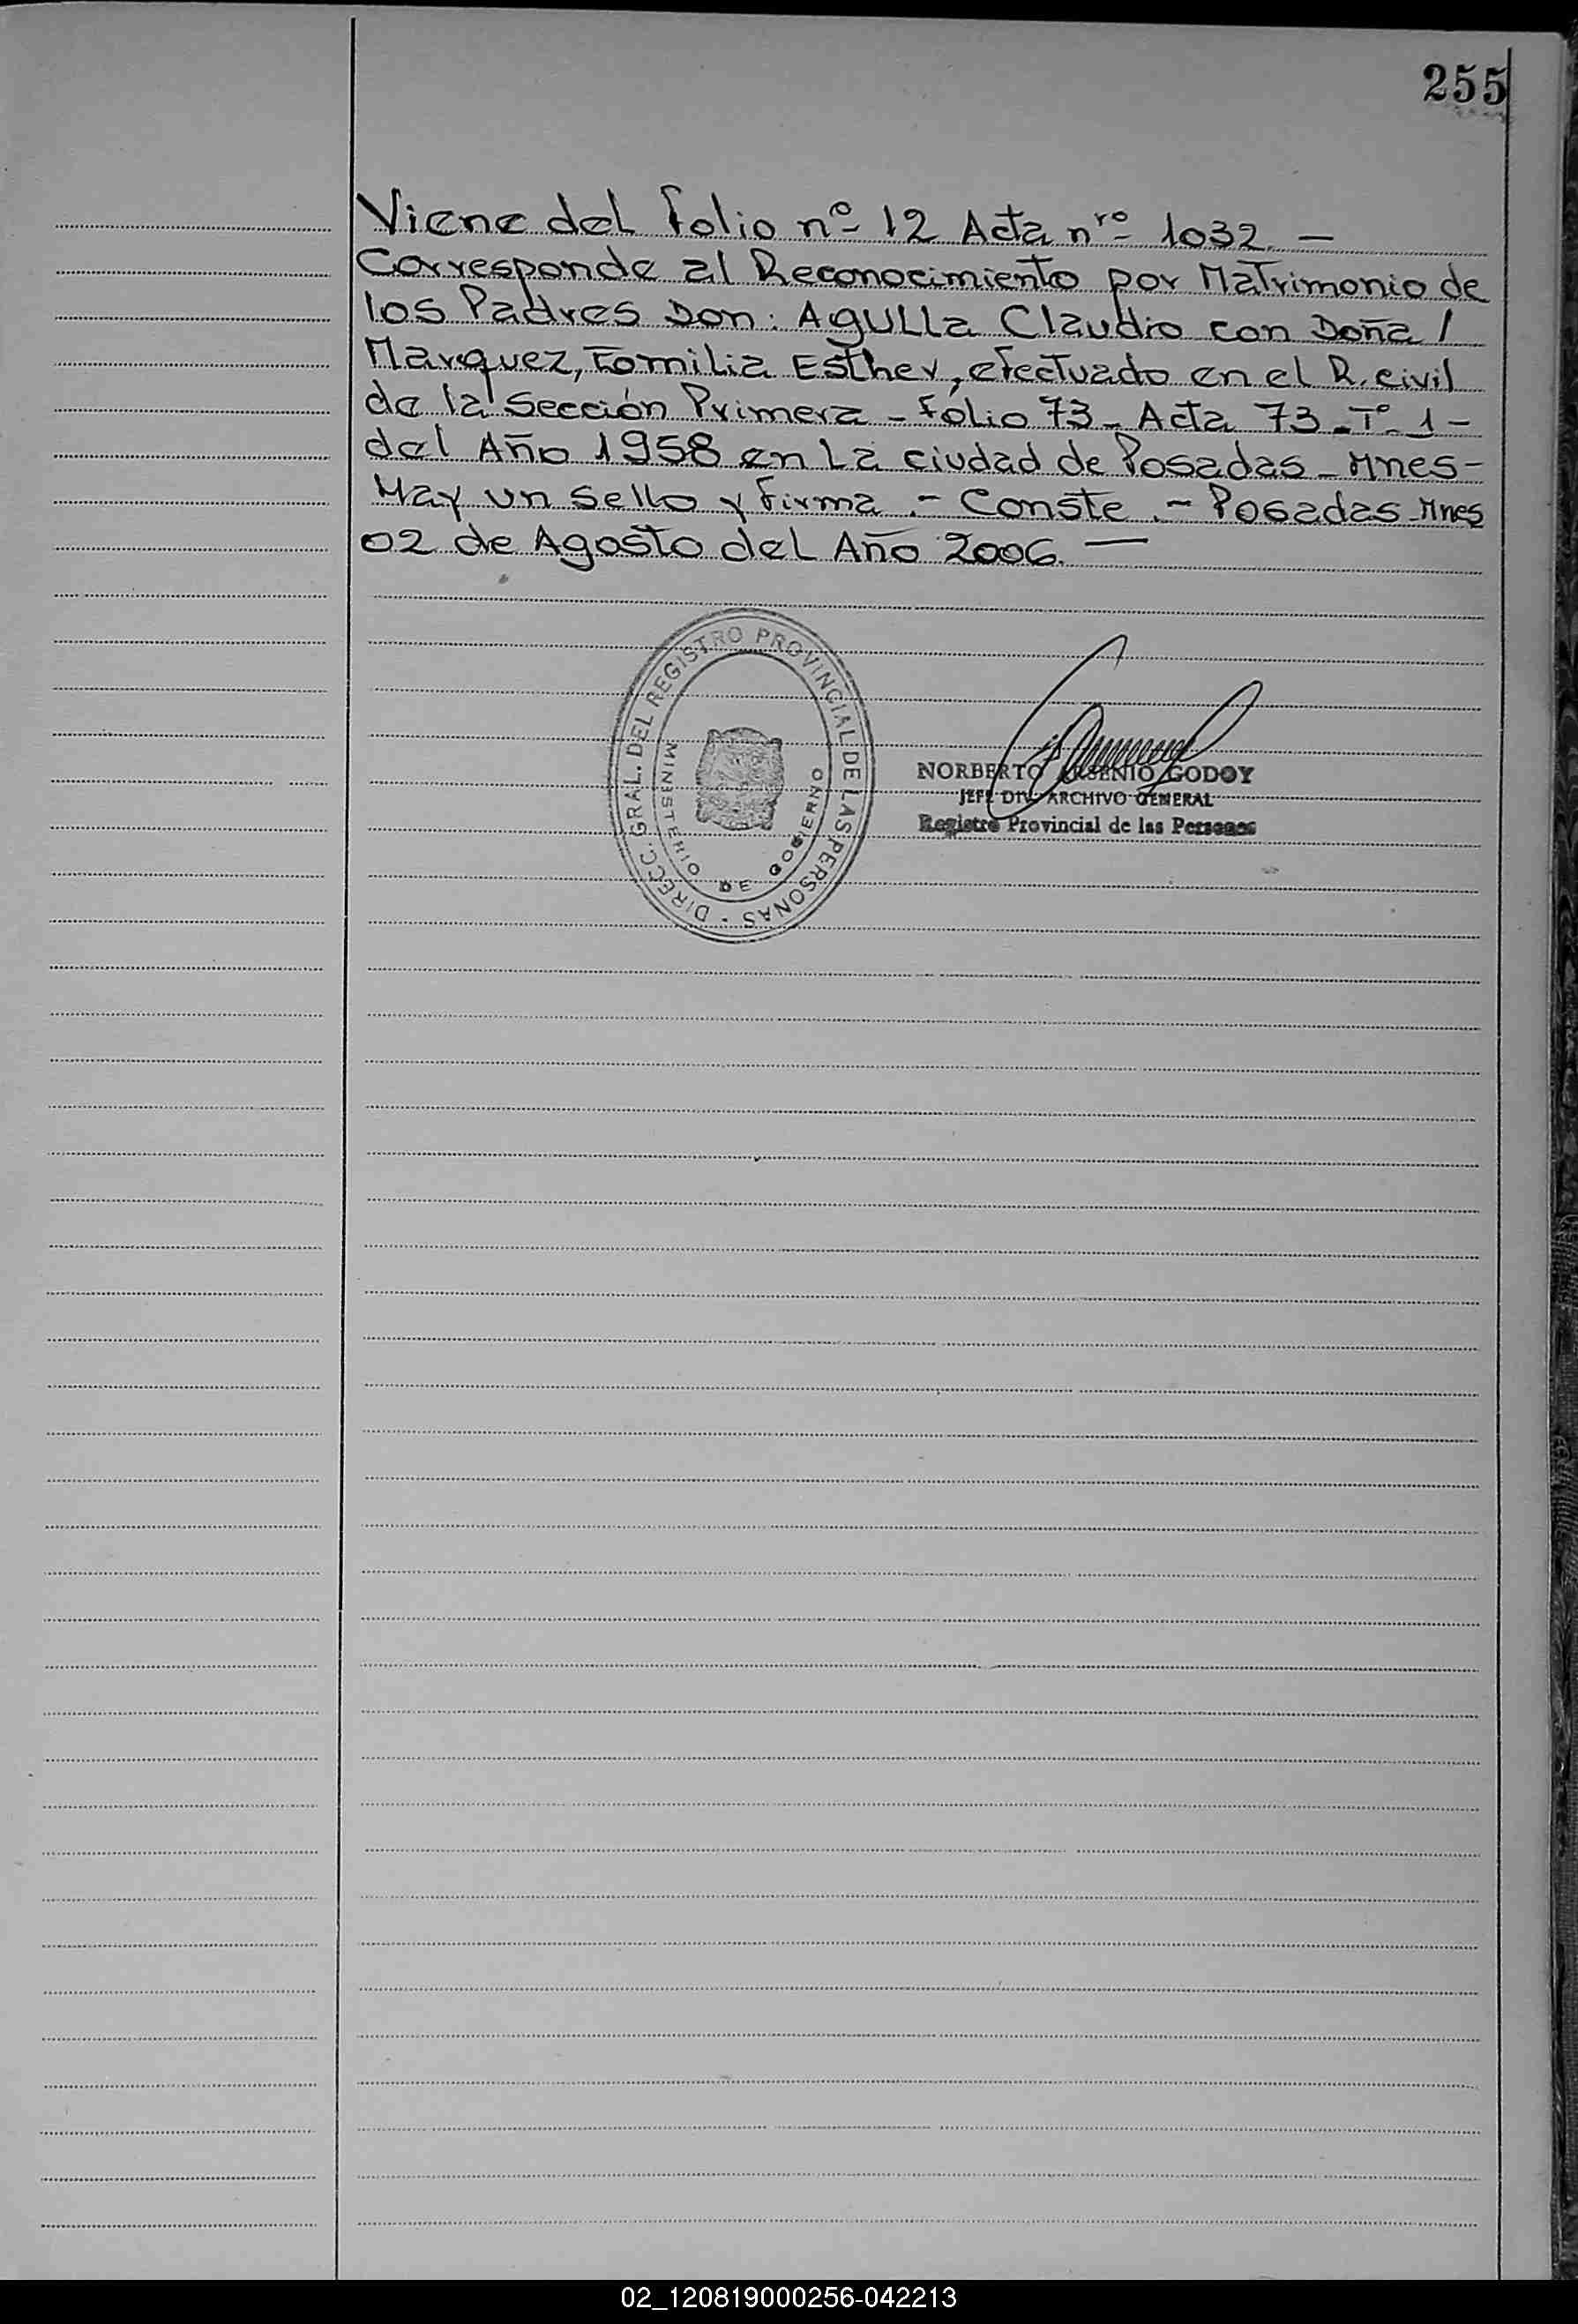 255
Viene del folio nº 12 Acta nrº 1032. —
Corresponde al Reconocimiento por Matrimonio de
los Padres Don: Agulla Claudio con Doña /
Marquez, Tomilia Esther, efectuado en el R. civil
de la Sección Primera - Folio 73 - Acta 73 - Tº - 1 -
del Año 1958 en La ciudad de Posadas - Mnes -
Hay un Sello y firma .- Conste .- Posadas - Mnes
02 de Agosto del Año 2006. —
DIRECC. GRAL. DEL REGISTRO PROVINCIAL DE LAS PERSONAS -
MINISTERIO DE GOBIERNO
NORBERTO ARSENIO GODOY
JEFE DIV. ARCHIVO GENERAL
Registro Provincial de las Personas
02_120819000256-042213